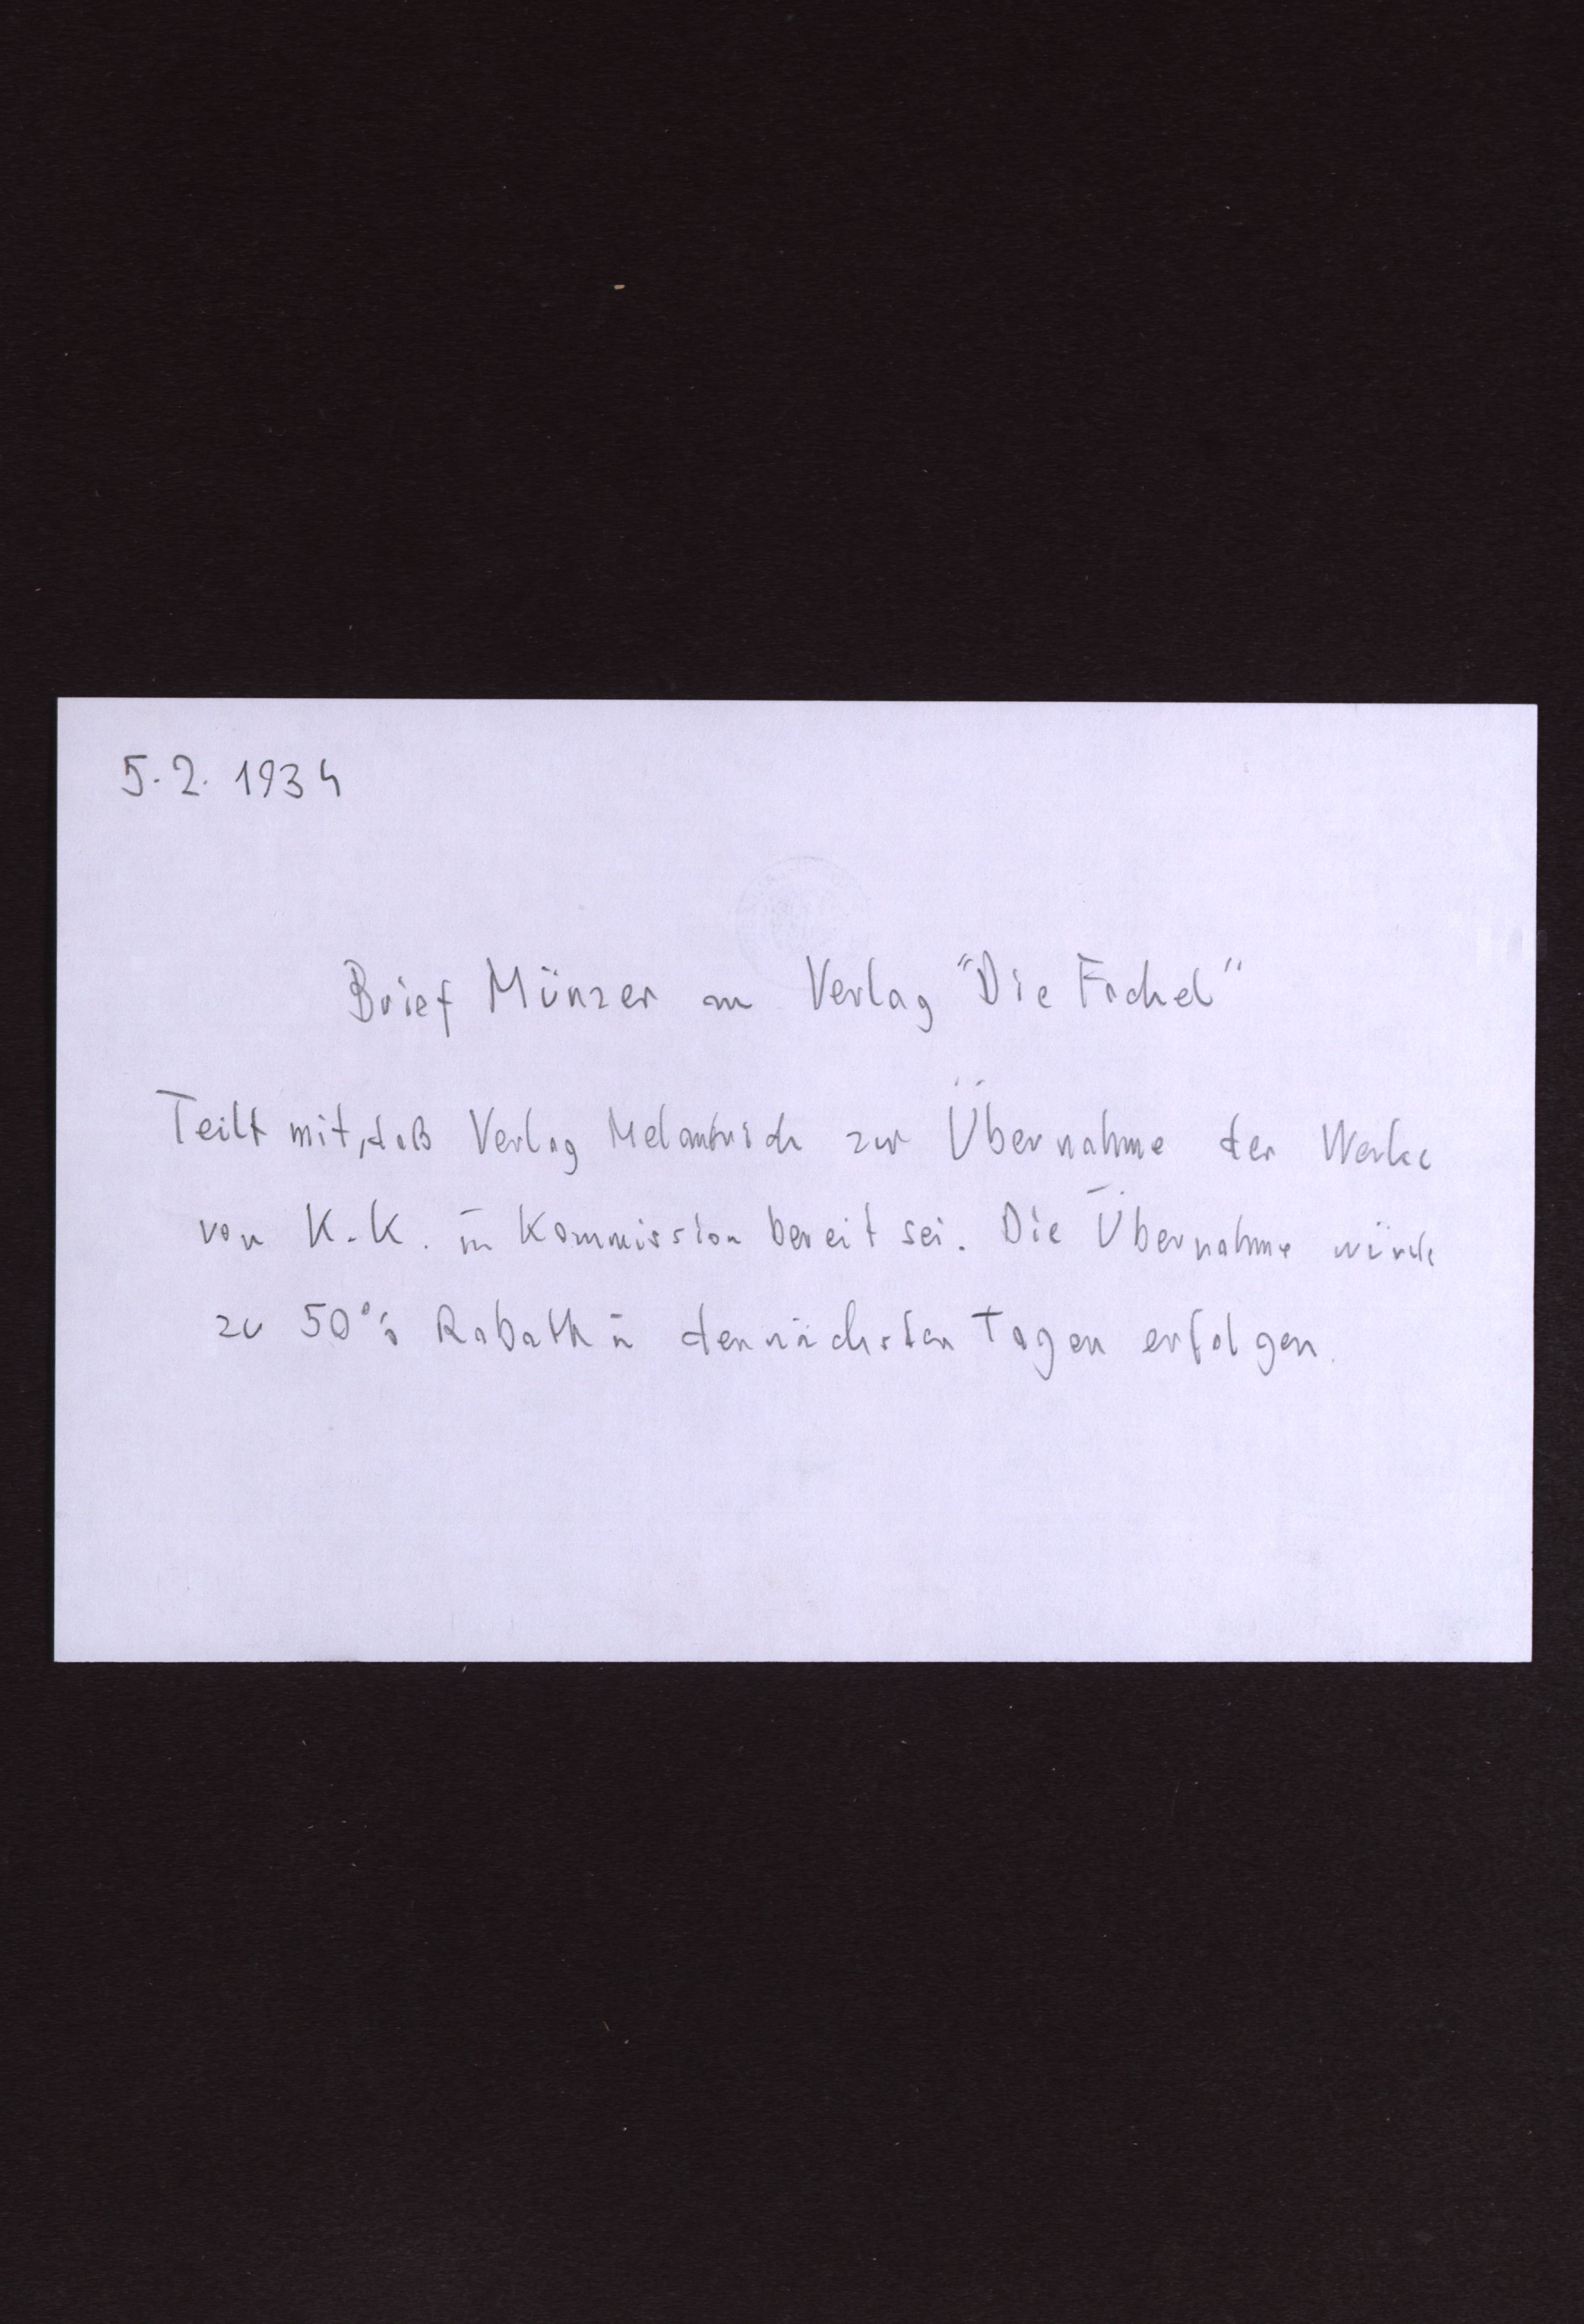 5.2. 1934
Brief Münzer an Verlag "Die Fackel"
Teilt mit, daß Verlag Melantrich zur Übernahme der Werke
von K.K. in Kommission bereit sei. Die Übernahme würde
zu 50% Rabatt in den nächsten Tagen erfolgen.